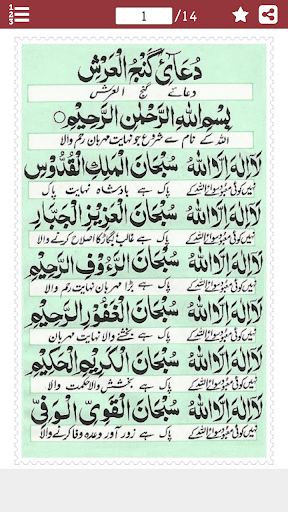 1 /14
دُعَائے گَنْجُ الْعَرْش
دعائے گنج العرش
بِسْمِ اللّٰهِ الرَّحْمٰنِ الرَّحِيْمِ
اللہ کے نام سے شروع جو نہایت مہربان رحم والا
لَا اِلٰهَ اِلَّا اللّٰهُ سُبْحَانَ الْمَلِكِ الْقُدُّوْسِ
نہیں کوئی معبود سوا اللہ کے پاک ہے بادشاہ نہایت پاک
لَا اِلٰهَ اِلَّا اللّٰهُ سُبْحَانَ الْعَزِيْزِ الْجَبَّارِ
نہیں کوئی معبود سوا اللہ کے پاک ہے غالب بگاڑ کا اصلاح کرنے والا
لَا اِلٰهَ اِلَّا اللّٰهُ سُبْحَانَ الرَّءُوْفِ الرَّحِيْمِ
نہیں کوئی معبود سوا اللہ کے پاک ہے بڑا مہربان نہایت رحم والا
لَا اِلٰهَ اِلَّا اللّٰهُ سُبْحَانَ الْغَفُوْرِ الرَّحِيْمِ
نہیں کوئی معبود سوا اللہ کے پاک ہے بخشنے والا نہایت مہربان
لَا اِلٰهَ اِلَّا اللّٰهُ سُبْحَانَ الْكَرِيْمِ الْحَكِيْمِ
نہیں کوئی معبود سوا اللہ کے پاک ہے بخشش والا حکمت والا
لَا اِلٰهَ اِلَّا اللّٰهُ سُبْحَانَ الْقَوِيِّ الْوَفِيِّ
نہیں کوئی معبود سوا اللہ کے پاک ہے زور آور وعدہ وفا کرنے والا